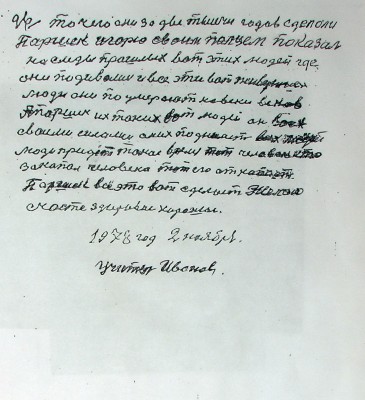 то чего они за две тысячи годов сделали
Паршек и горю своим пальцем показал
на следы прошлых вот этих людей где
они подевались и все эти вот
люди они поумерали на веки веков
А Паршек их таких вот людей он
своими силами с них
люди придёт такое время тот человек кто
закапал человека тот его откапает
Паршек всё это вот сделает Желаю
счастье здоровье хорошее.
1978 год 2 ноября.
Учитель Иванов.